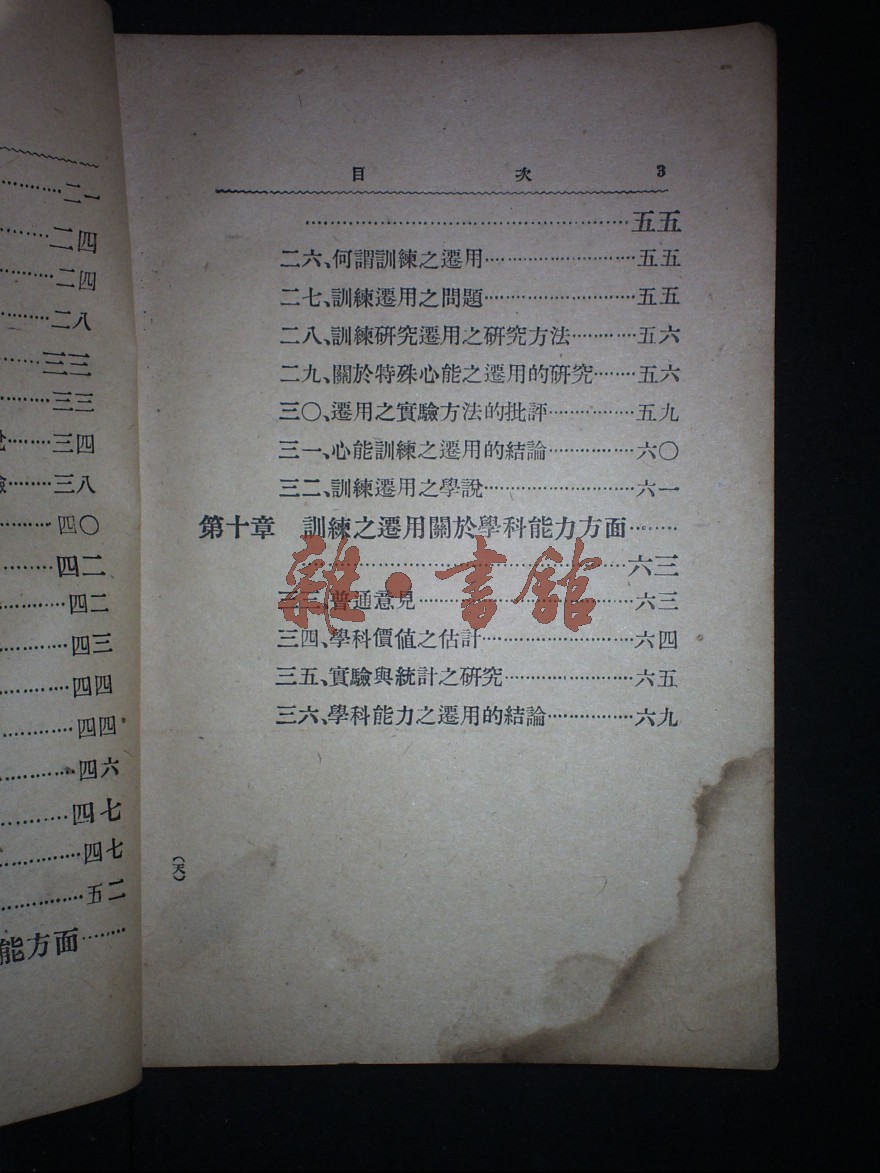 二一
二四
二四
二八
三三
三三
三四
驗……三八
四〇
四二
四二
四三
四四
四四
四六
四七
四七
五二
能方面……
目次 3
……五五
二六、何謂訓練之遷用……五五
二七、訓練遷用之問題……五五
二八、訓練研究遷用之研究方法……五六
二九、關於特殊心能之遷用的研究……五六
三〇、遷用之實驗方法的批評……五九
三一、心能訓練之遷用的結論……六〇
三二、訓練遷用之學說……六一
第十章 訓練之遷用關於學科能力方面……
……六三
三三、普通意見……六三
三四、學科價值之估計……六四
三五、實驗與統計之研究……六五
三六、學科能力之遷用的結論……六九
(天)
雜·書館